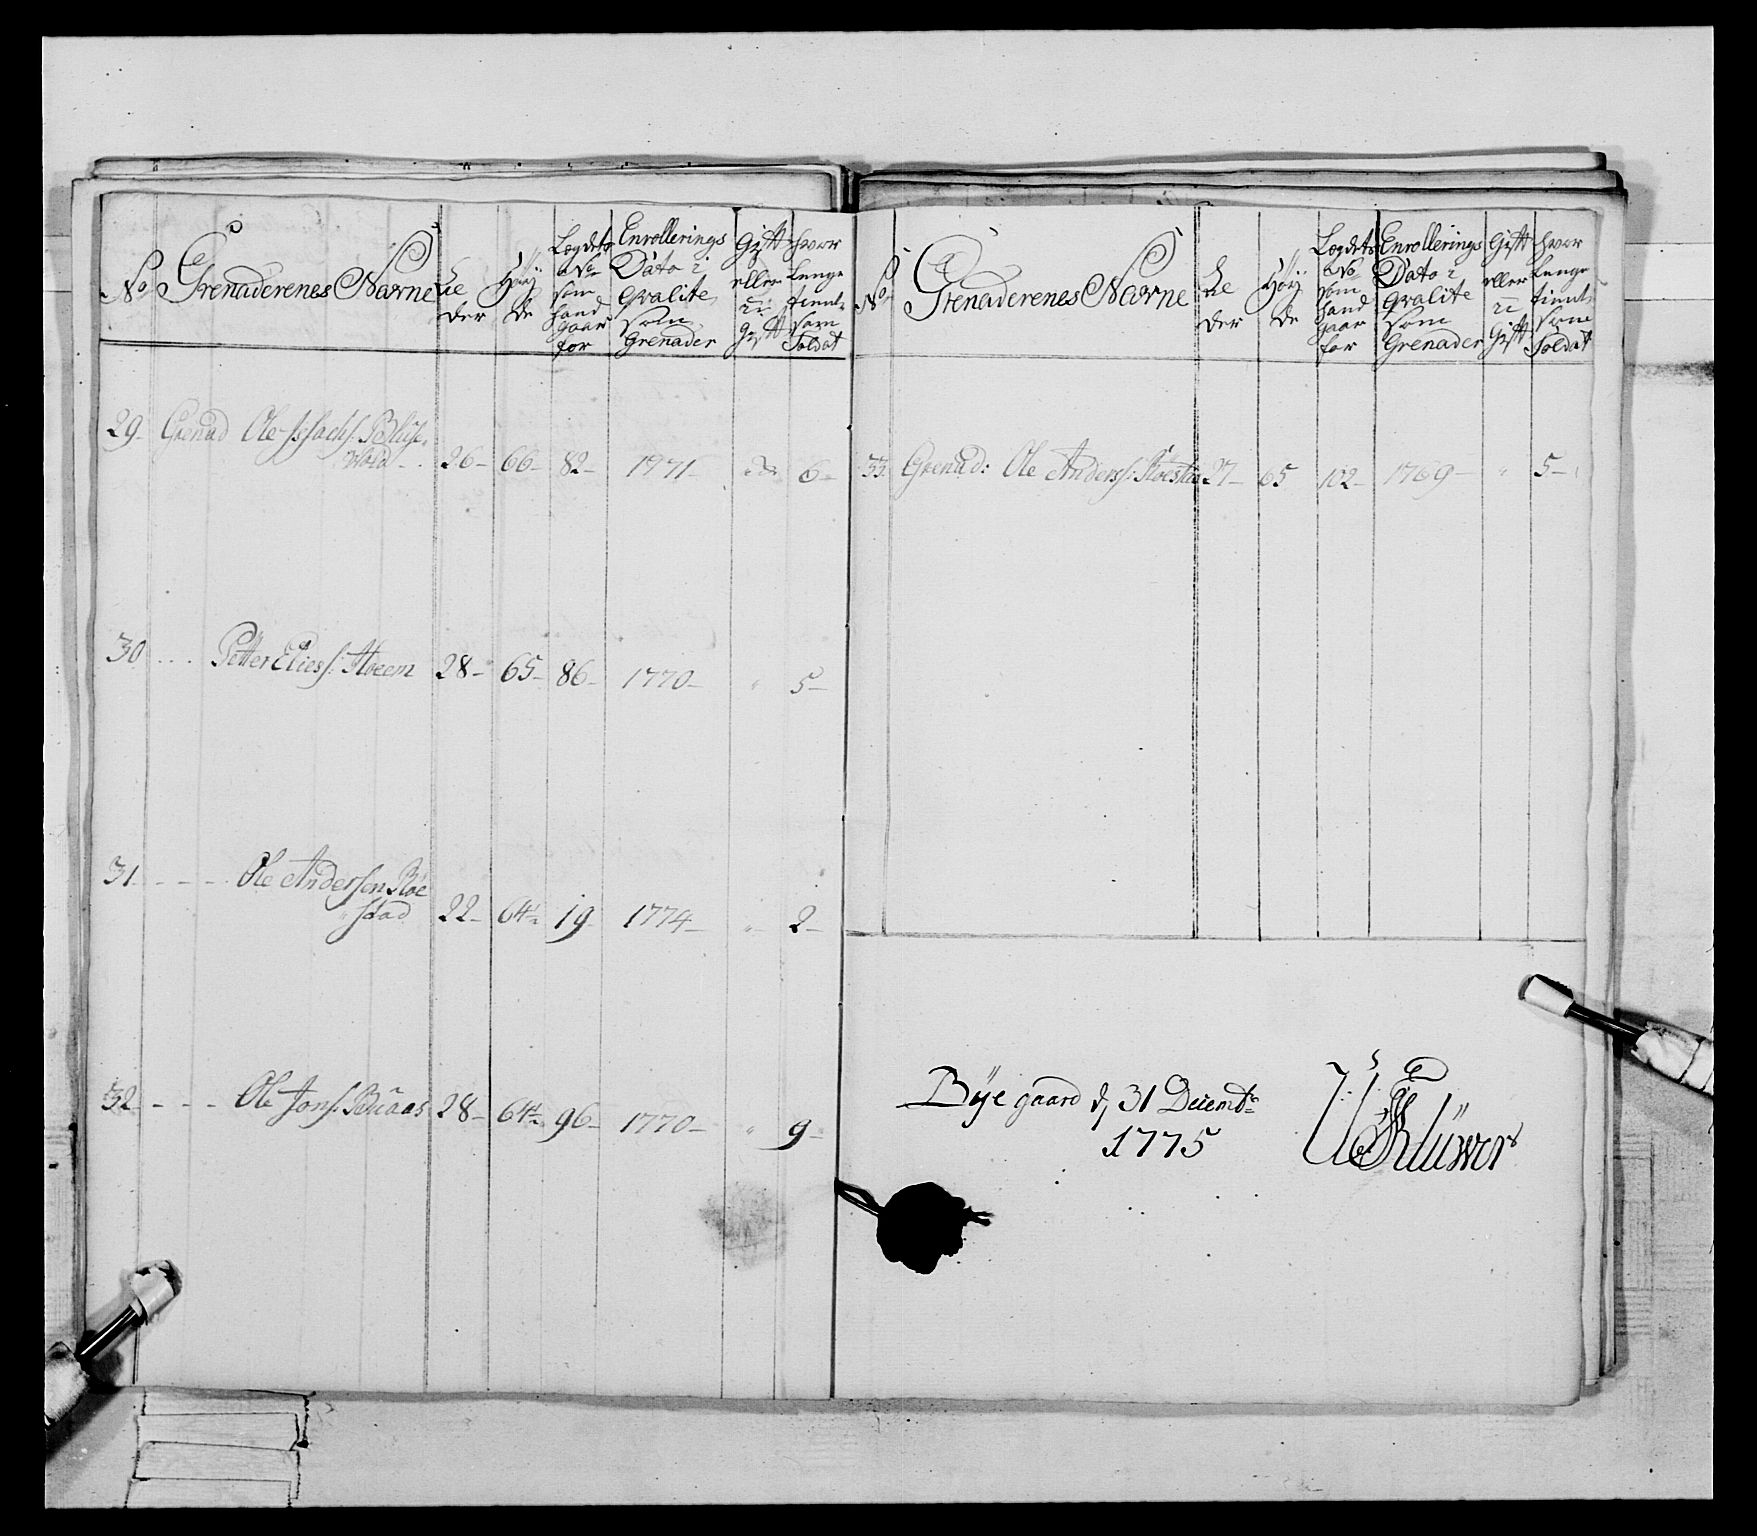 No Grenaderenes Navne Ae der Høy de Lægdets No som hand gaar for Enrollerings Dato i Qvalite som Grenader Gift eller u Gift hvor Lenge tient som Soldat
29 Grenad Ole
Wold 26 66 82 1771 do 6
30 Petter Elies: Hoem 28 65 86 1770 " 5
31 Ole Andersen Roe
stad 22 64½ 19 1774 " 2
32 Ole Jons: Buaas 28 64½ 96 1770 " 9
No Grenaderenes Navne Ae der Høy de Lægdets No som hand gaar for Enrollerings Dato i Qvalite som Grenader Gift eller u Gift hvor Lenge tient som Soldat
33 Grenad: Ole Anderss: 27 65 102 1769 " 5
Bye gaard d 31 Decembr
1775
Klüwer